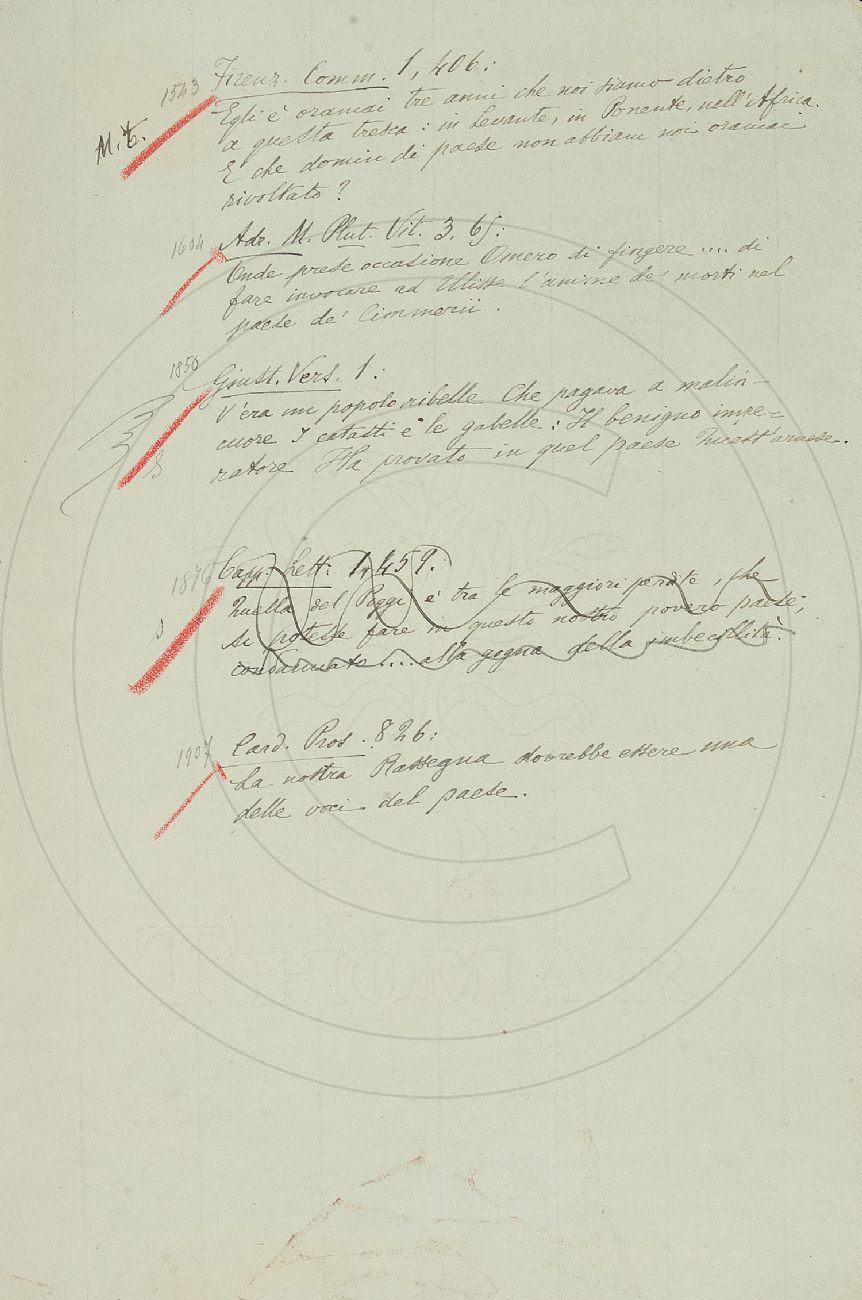 1543 Firenz. Comm. 1, 406:
M.t. Egli è oramai tre anni che noi siamo dietro
a questa tresca: in Levante, in Ponente, nell'Africa.
E che domin di paese non abbiam noi oramai
rivoltato?
1604 Adr. M. Plut. Vit. 3, 65:
Onde prese occasione Omero di fingere .... di
fare invocare ad Ulisse l'anime de' morti nel
paese de' Cimmerii.
1850 Giust. Vers. 1:
V'era un popolo ribelle Che pagava a malin-
cuore I catasti e le gabelle: Il benigno impe=
ratore Ha provato in quel paese Quest'arnese.
1876 Capp. Lett. 1, 459:
Quella del Poggi è tra le maggiori perdite, che
si potesse fare in questo nostro povero paese,
condannato .... alla gogna della imbecillità.
1907 Card. Pros. 826:
La nostra Rassegna dovrebbe essere una
delle voci del paese.